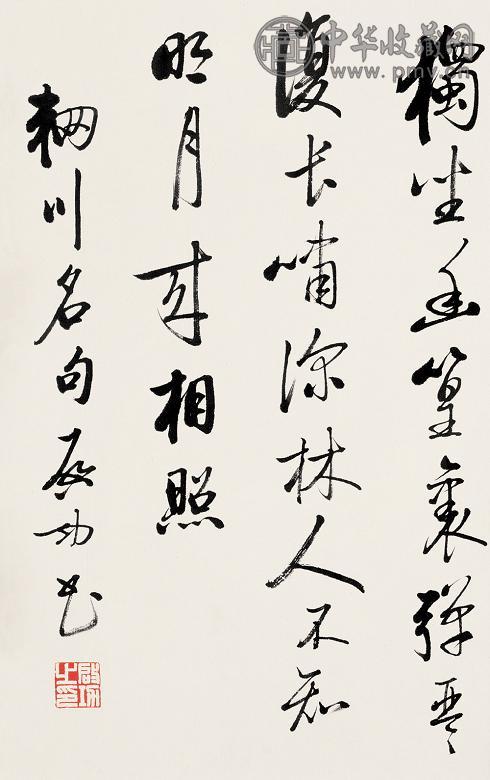 獨坐幽篁裏彈琴
復長嘯深林人不知
明月來相照
輞川名句啟功書
啟功之印
中华收藏网
www.pmv.cn